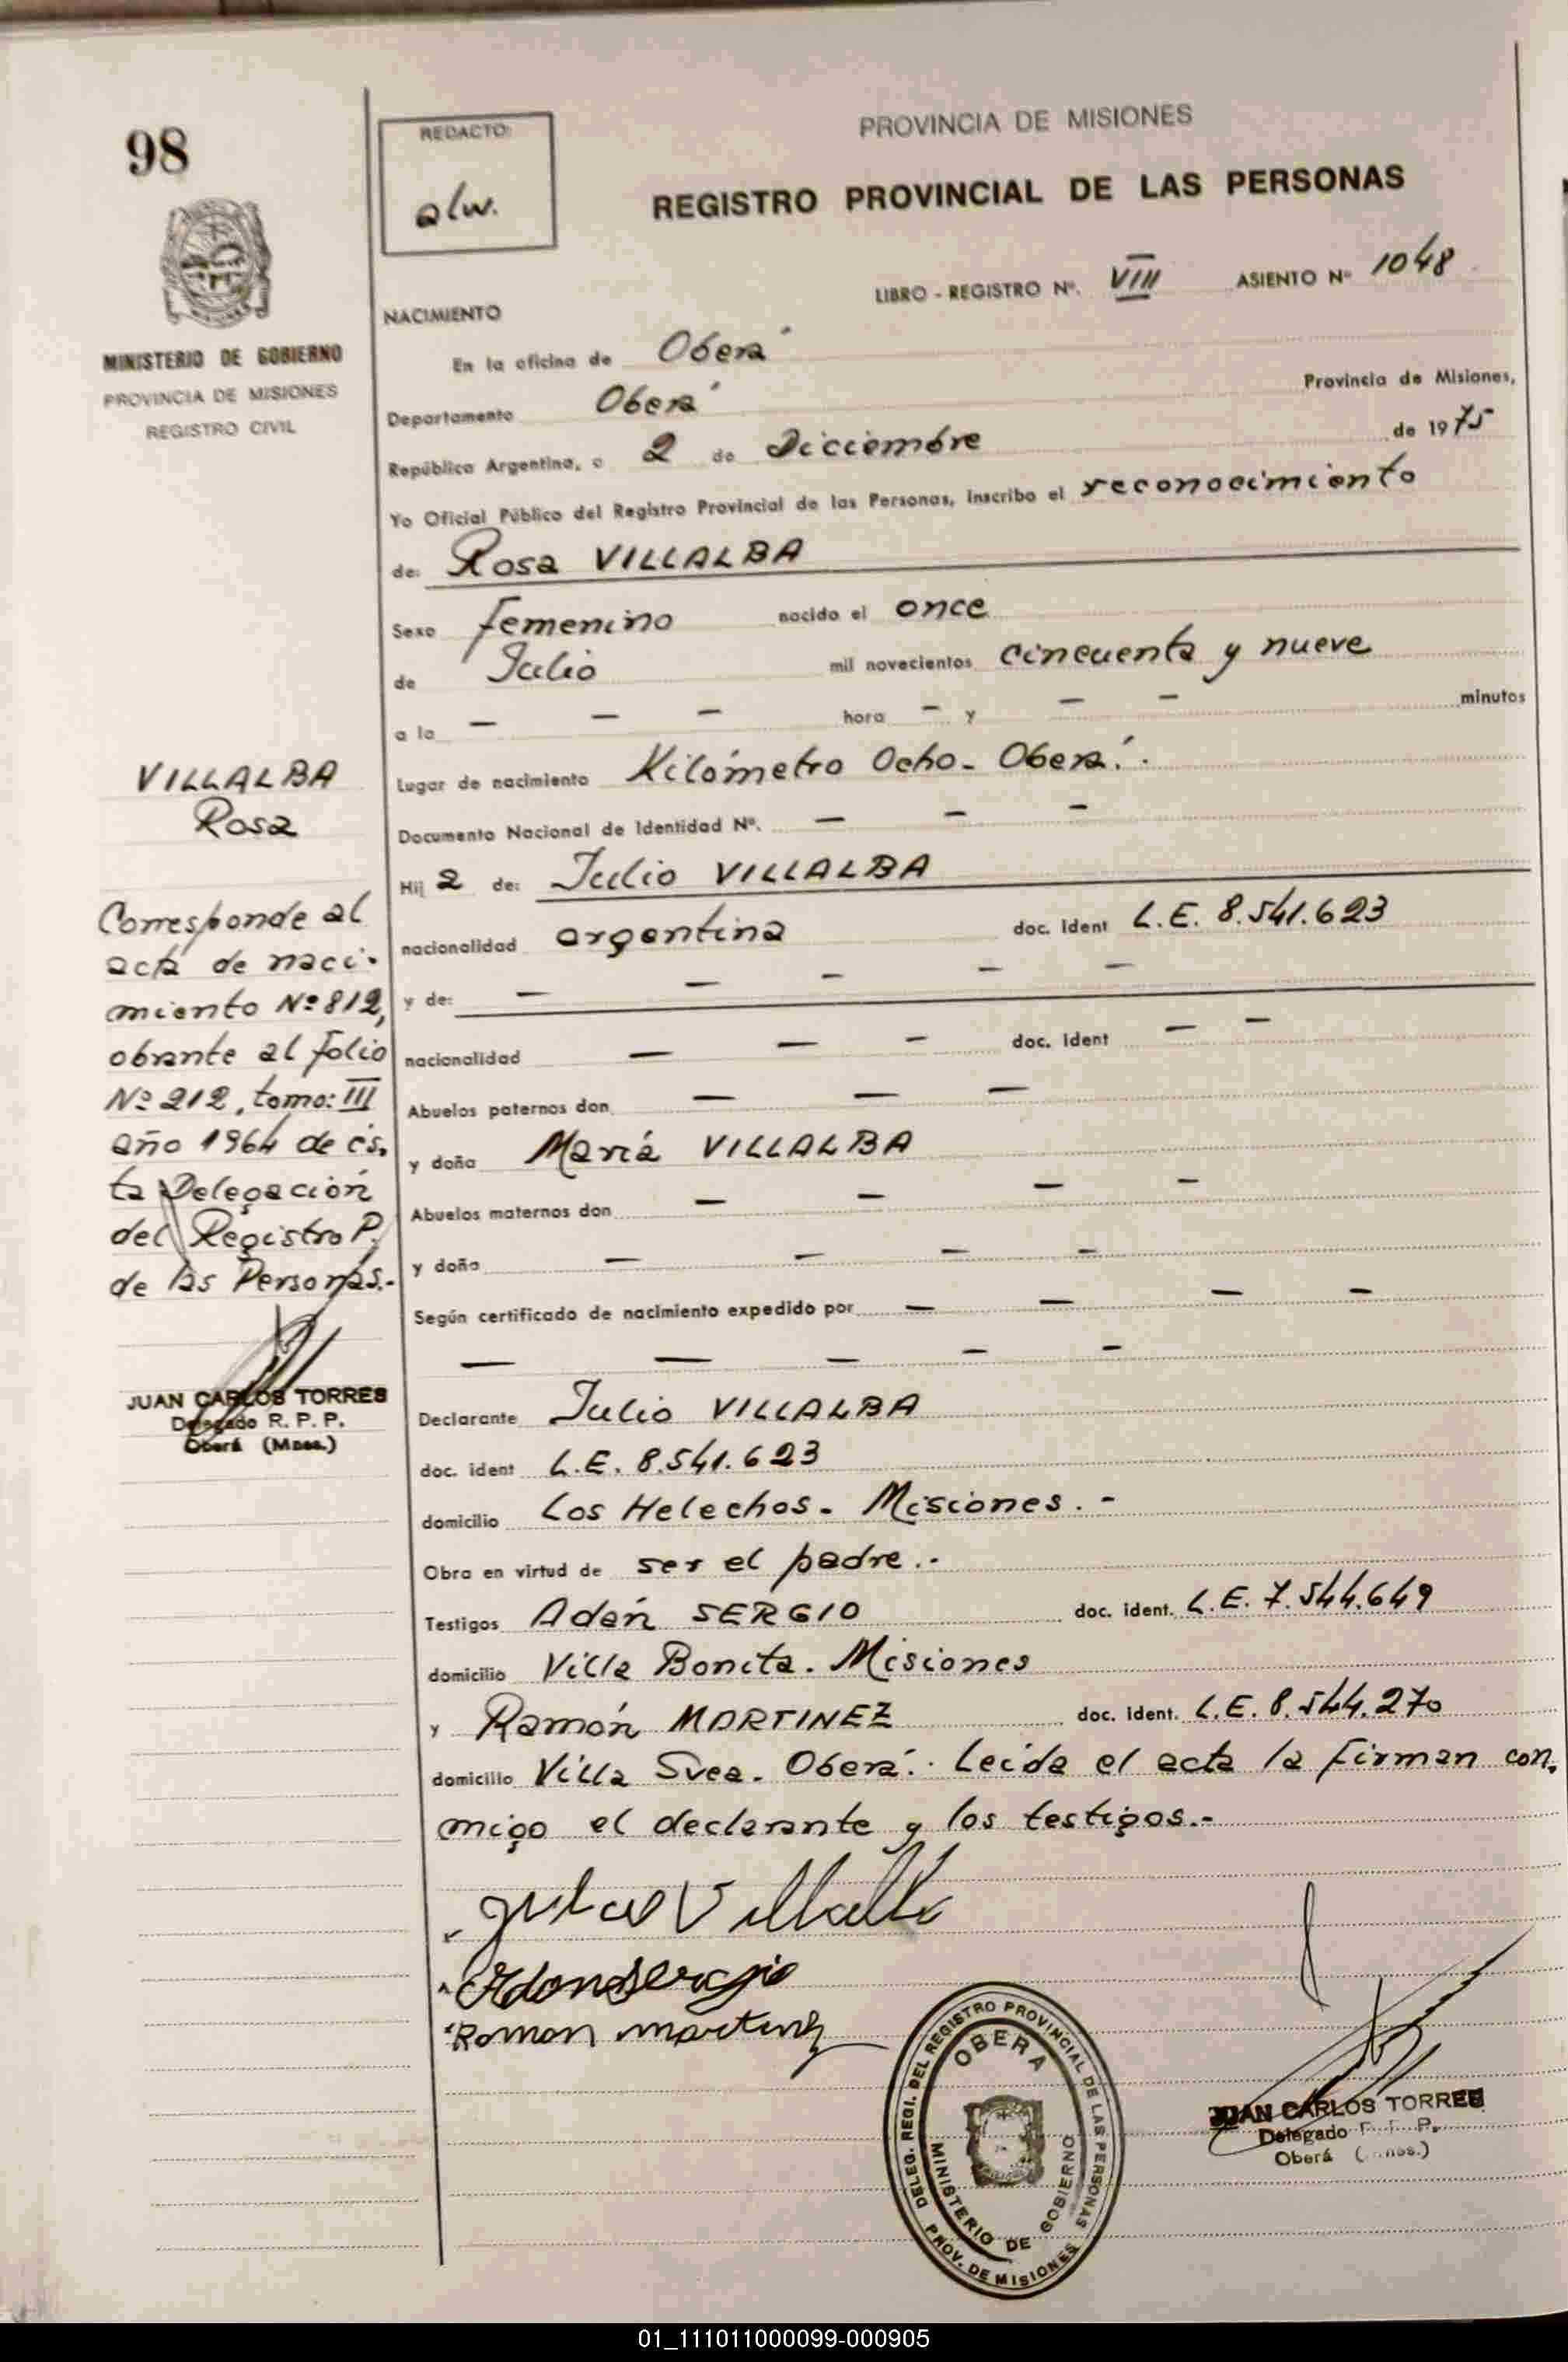 98
REDACTO:
alw.
PROVINCIA DE MISIONES
REGISTRO PROVINCIAL DE LAS PERSONAS
LIBRO - REGISTRO Nº. VIII ASIENTO Nº 1048
MINISTERIO DE GOBIERNO
PROVINCIA DE MISIONES
REGISTRO CIVIL
NACIMIENTO
En la oficina de Oberá
Departamento Oberá Provincia de Misiones,
República Argentina, a 2 de Diciembre de 1975
Yo Oficial Público del Registro Provincial de las Personas, inscribo el reconocimiento
de: Rosa VILLALBA
Sexo femenino nacido el once
de Julio mil novecientos cincuenta y nueve
a la — — — hora — y — — minutos
Lugar de nacimiento Kilómetro Ocho - Oberá.-
Documento Nacional de Identidad Nº. — — —
Hij a de: Julio VILLALBA
nacionalidad argentina doc. ident L.E. 8.541.623
y de: — — — — —
nacionalidad — — — doc. ident — —
Abuelos paternos don — — —
y doña María VILLALBA
Abuelos maternos don — — — —
y doña — — — —
Según certificado de nacimiento expedido por — — — —
— — — — —
Declarante Julio VILLALBA
doc. ident L.E. 8.541.623
domicilio Los Helechos - Misiones.-
Obra en virtud de ser el padre.-
Testigos Adán SERGIO doc. ident. L.E. 7.544.649
domicilio Villa Bonita. Misiones
y Ramón MARTINEZ doc. ident. L.E. 8.544.270
domicilio Villa Svea. Oberá.- Leída el acta la firman con-
migo el declarante y los testigos.-
Julio Villalba
Adan Sergio
Ramon martinez
VILLALBA
Rosa
Corresponde al
acta de naci-
miento Nº 812,
obrante al folio
Nº 212, tomo: III
año 1964 de és-
ta Delegación
del Registro P.
de las Personas.-
JUAN CARLOS TORRES
Delegado R. P. P.
Oberá (Mnes.)
DELEG. REGI. DEL REGISTRO PROVINCIAL DE LAS PERSONAS
OBERA
MINISTERIO DE GOBIERNO
PROV. DE MISIONES
JUAN CARLOS TORRES
Delegado R. P. P.
Oberá (Mnes.)
01_111011000099-000905